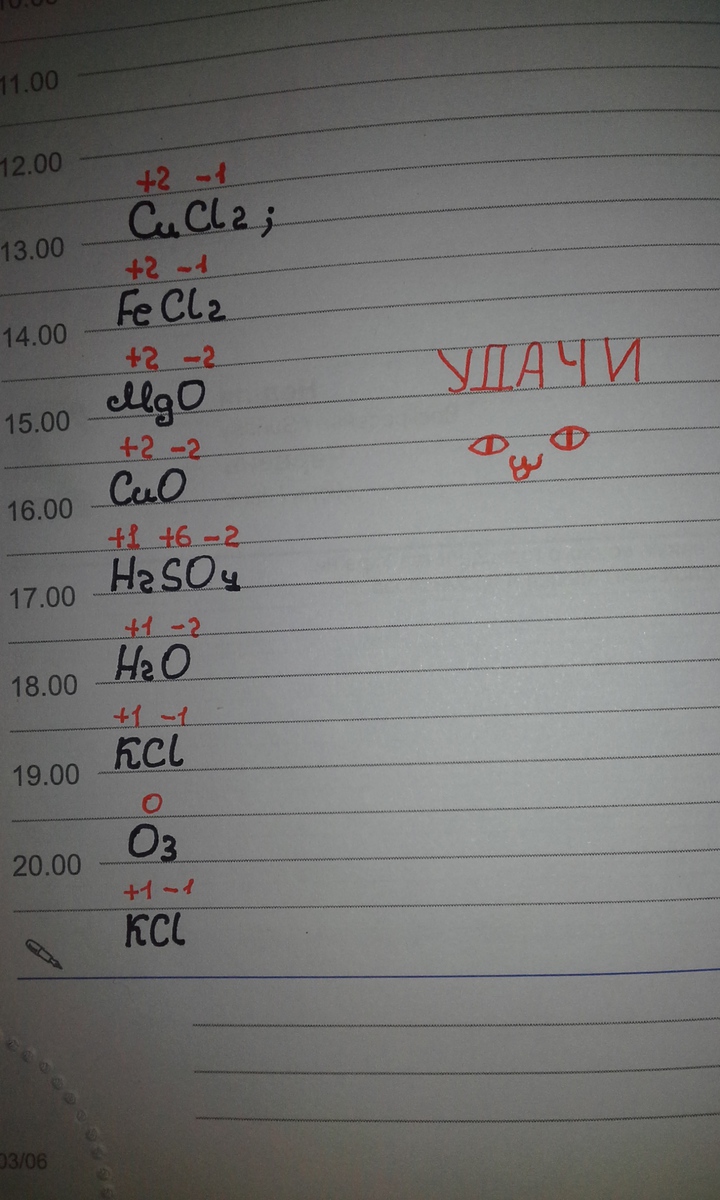 11.00
12.00
+2 -1
CuCl2;
13.00
+2 -1
FeCl2
14.00
+2 -2
MgO
УДАЧИ
15.00
+2 -2
CuO
16.00
+1 +6 -2
H2SO4
17.00
+1 -2
H2O
18.00
+1 -1
KCl
19.00
0
O3
20.00
+1 -1
KCl
03/06